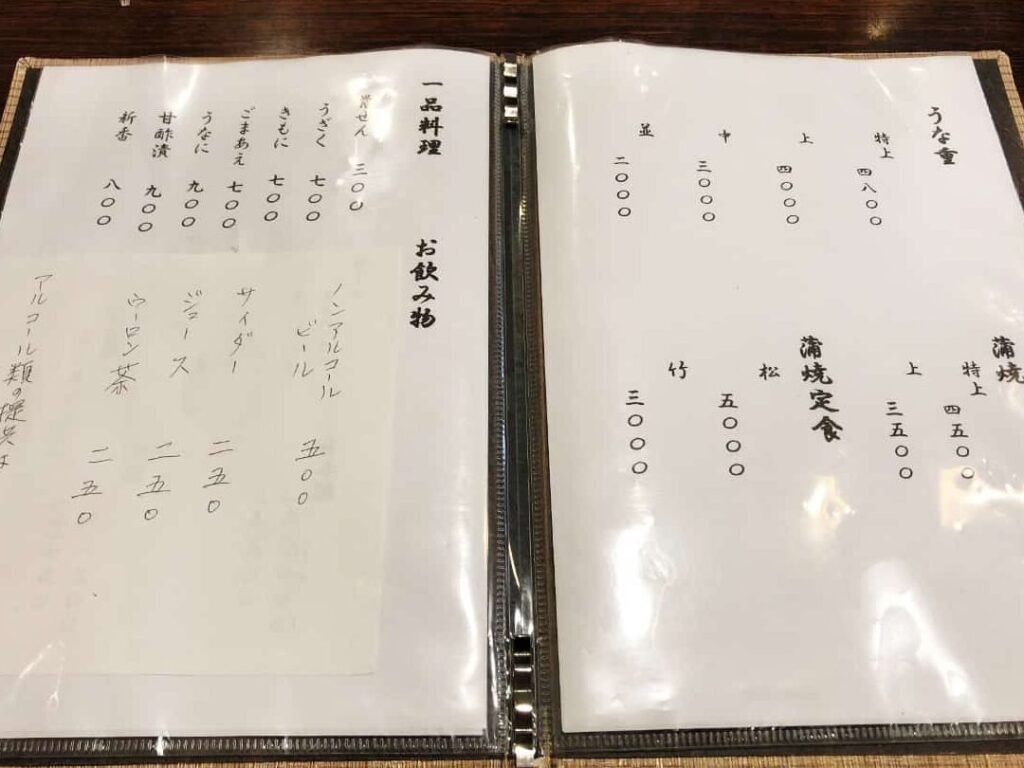 うな重
特上 四八〇〇
上 四〇〇〇
中 三〇〇〇
並 二〇〇〇
蒲焼
特上 四五〇〇
上 三五〇〇
蒲焼定食
松 五〇〇〇
竹 三〇〇〇
一品料理
骨せん 三〇〇
うざく 七〇〇
きもに 七〇〇
ごまあえ 七〇〇
うなに 九〇〇
甘酢漬 九〇〇
新香 八〇〇
お飲み物
ノンアルコール
ビール 五〇〇
サイダー 二五〇
ジュース 二五〇
ウーロン茶 二五〇
アルコール類の提供は